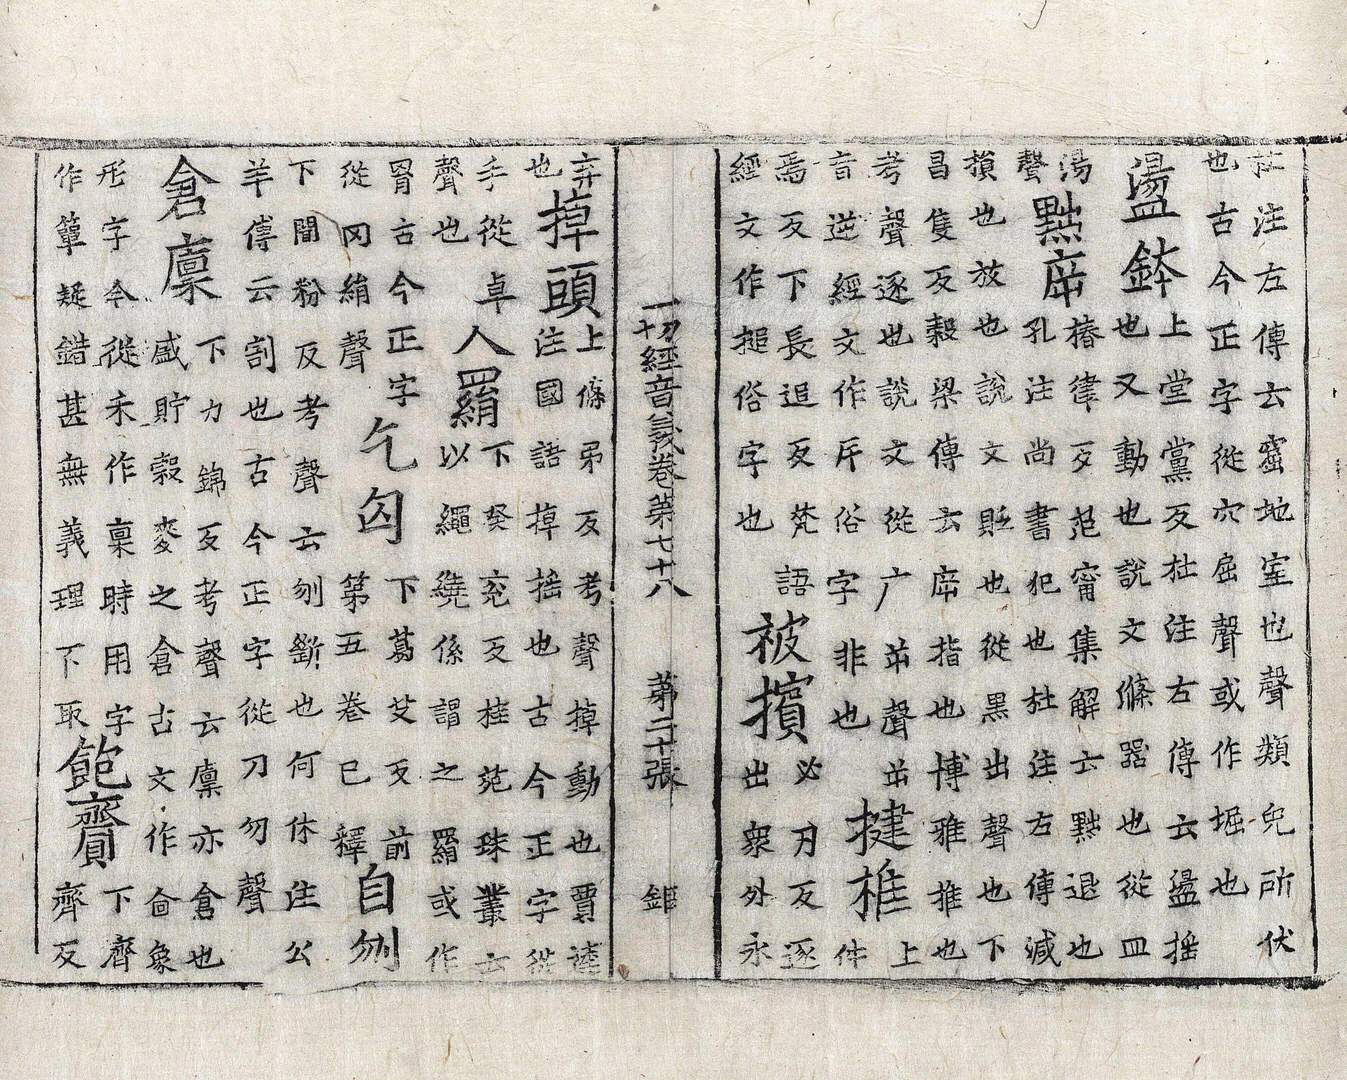 杜注左傳云窟地室也聲類兔所伏也古今正字從穴屈聲或作堀也
盪鉢上堂黨反杜注左傳云盪搖也又動也說文滌器也從皿
湯聲黜㡿椿律反范甯集解云黜退也孔注尚書犯也杜注左傳減
損也放也說文貶也從黑出聲也下昌隻反穀梁傳云㡿指也博雅推也
考聲逐也說文從广屰聲屰音逆經文作斥俗字非也揵椎上件
焉反下長追反梵語經文作搥俗字也被擯必刃反逐出衆外永
一切經音義卷第七十八 第二十張 鉅
弃也掉頭上條弔反考聲掉動也賈逵注國語掉搖也古今正字從
手從卓聲也人羂下癸兖反桂苑珠叢云以繩繞係謂之羂或作
罥古今正字從冈絹聲乞匃下葛艾反前第五卷已釋自刎
下聞粉反考聲云刎斷也何休注公羊傳云割也古今正字從刀勿聲
倉廩下力錦反考聲云廩亦倉也盛貯穀麥之倉古文作㐭象
形字今從禾作稟時用字作簞疑錯甚無義理下取飽齎下齊齊反